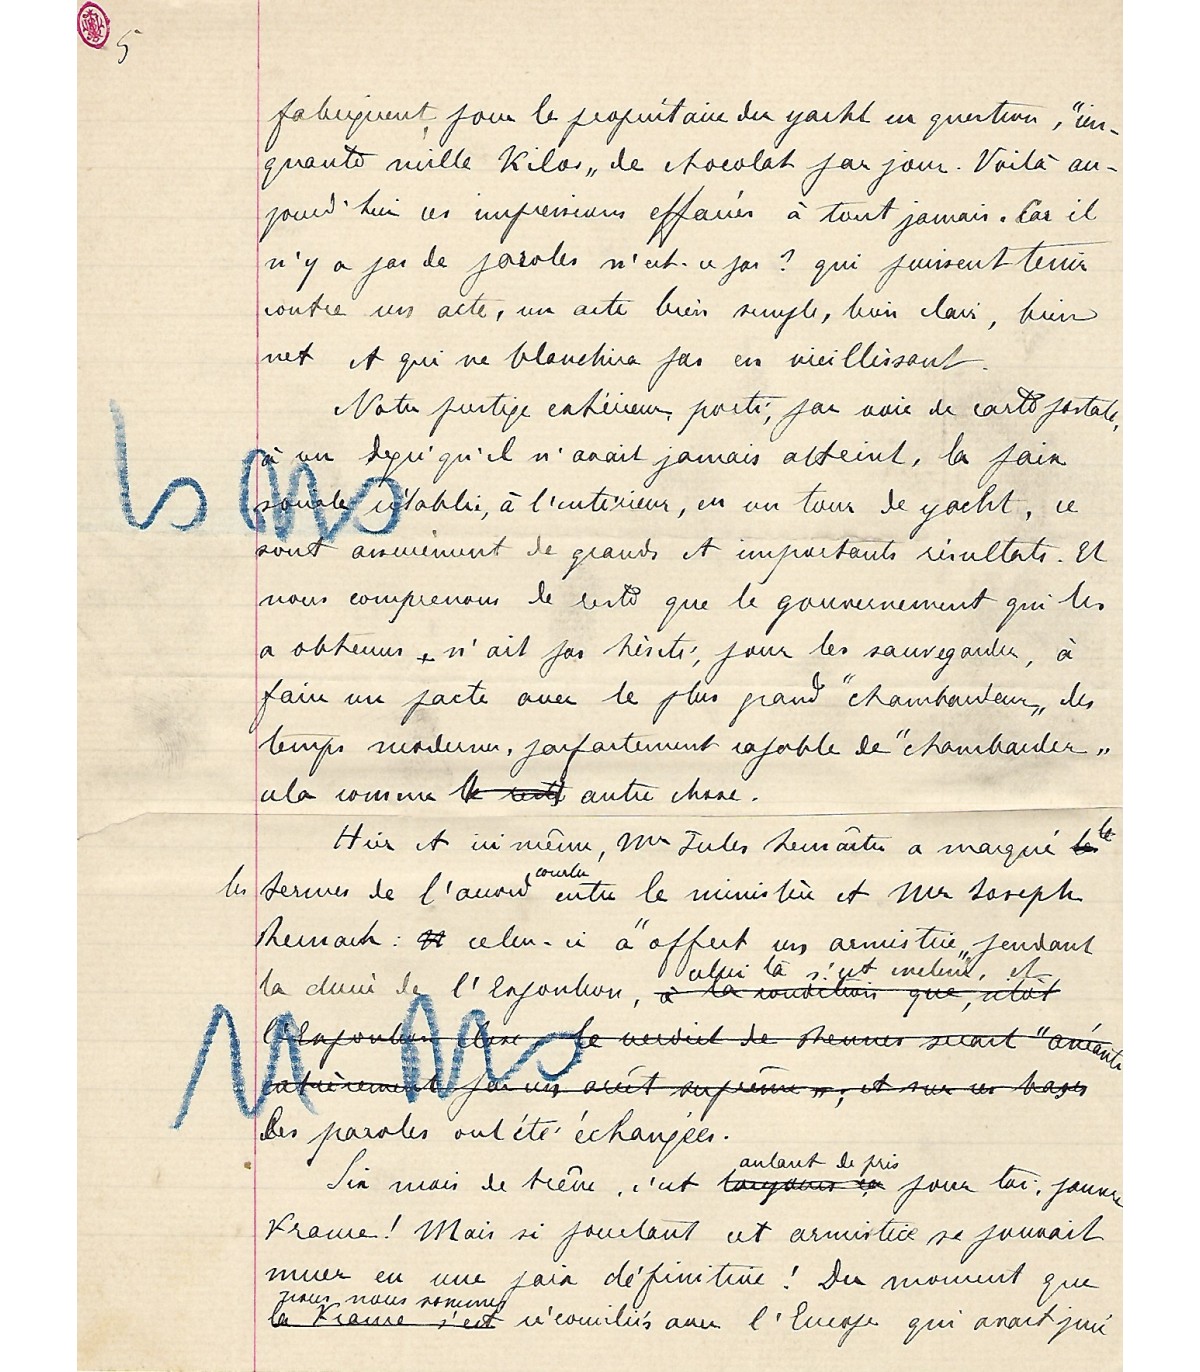 5
fabriquent, pour le propriétaire du yacht en question, "cin-
quante mille Kilos" de chocolat par jour. Voilà au-
jourd'hui ces impressions effacées à tout jamais. Car il
n'y a pas de paroles n'est-ce pas? qui puissent tenir
contre un acte, un acte bien simple, bien clair, bien
net et qui ne blanchira pas en vieillissant.
Notre prestige extérieur, porté, par voie de carte postale,
à un degré qu'il n'avait jamais atteint, la paix
sociale rétablie, à l'intérieur, en un tour de yacht, ce
sont assurément de grands et importants résultats. Et
nous comprenons de reste que le gouvernement qui les
a obtenus, n'ait pas hésité, pour les sauvegarder, à
faire un pacte avec le plus grand "chambardeur" des
temps modernes, parfaitement capable de "chambarder"
cela comme le reste autre chose.
Hier et ici même, Mr Jules Lemaître a marqué le
les termes de l'accord conclu entre le ministère et Mr Joseph
Reinach: celui-ci a "offert un armistice" pendant
celui là s'est incliné, et
la durée de l'Exposition, à la condition que, sitôt
l'Exposition close, le verdict de Rennes serait "anéanti
entièrement par un arrêt suprême"; et sur ces bases
Des paroles ont été échangées.
autant de pris
Six mois de trêve, c'est toujours ça pour toi, pauvre
France! Mais si pourtant cet armistice se pouvait
muer en une paix définitive! Du moment que
nous nous sommes
la France s'est réconciliés avec l'Europe qui avait juré